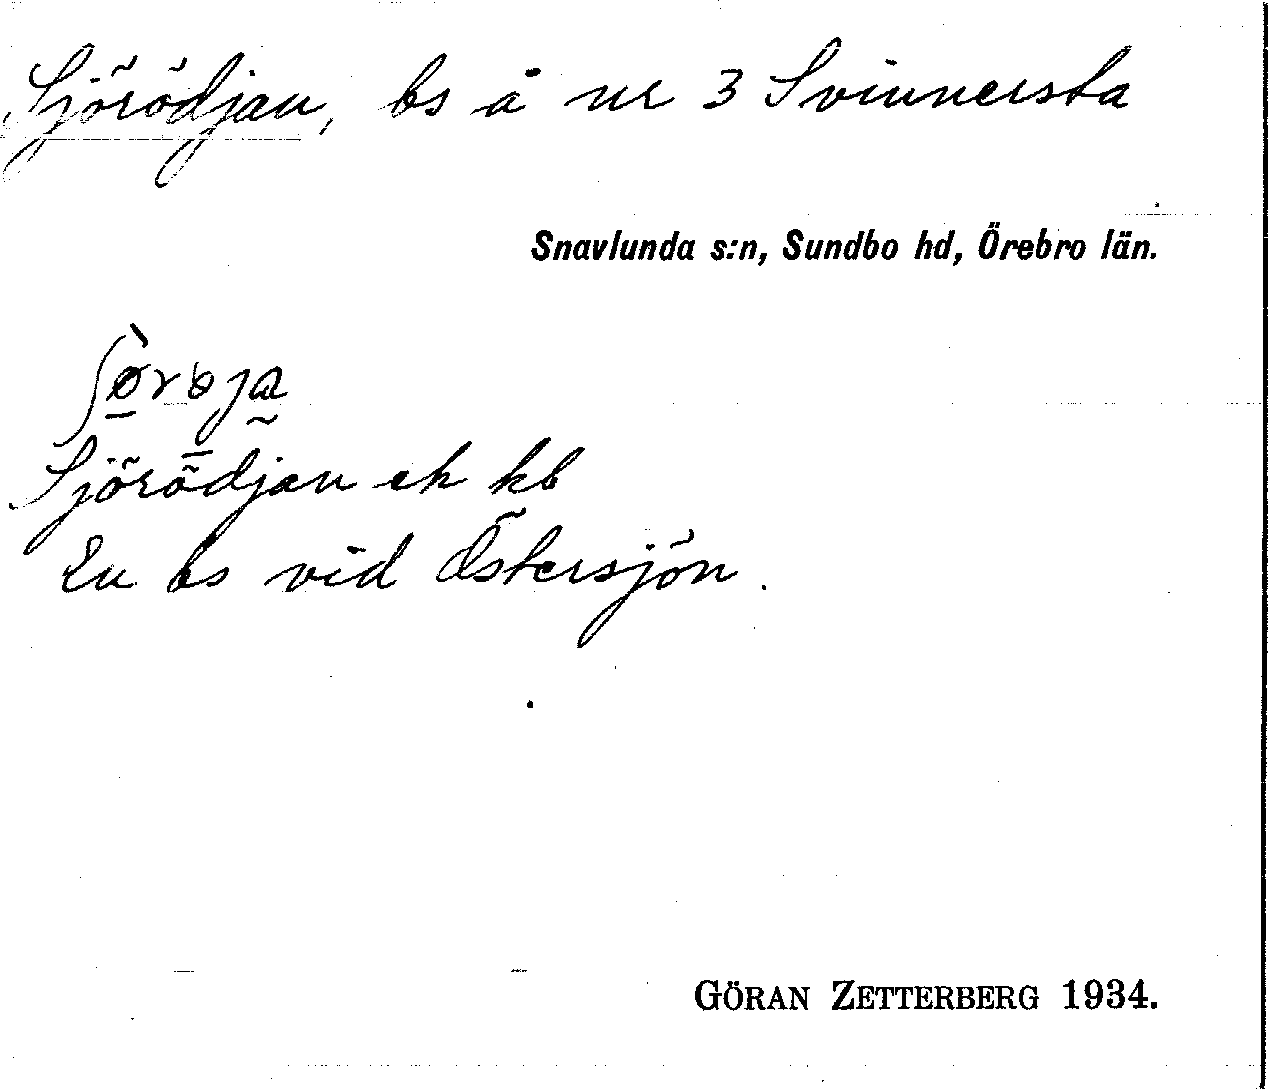 Sjörödjan, bs å nr 3 Svinnersta
Snavlunda s:n, Sundbo hd, Örebro län.
Sjörödjan ek kb
En bs vid Östersjön.
GÖRAN ZETTERBERG 1934.